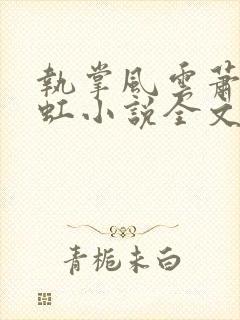 執掌風雲蕭
虹小說全文
青梔未白